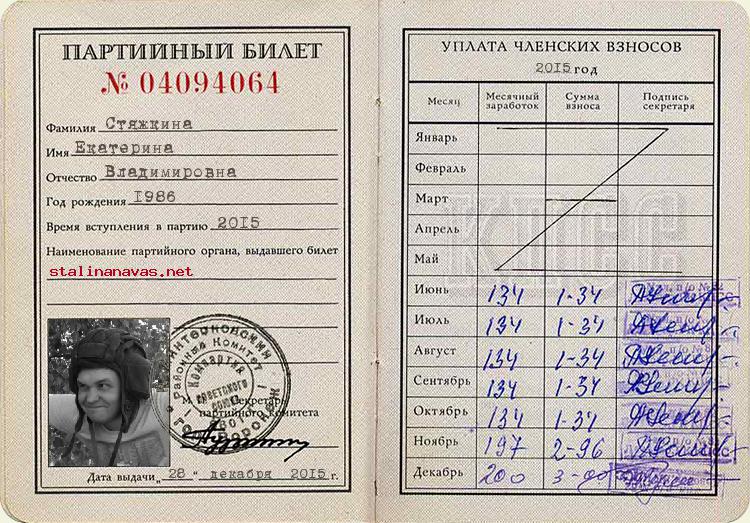 ПАРТИЙНЫЙ БИЛЕТ
№ 04094064
Фамилия Стяжкина
Имя Екатерина
Отчество Владимировна
Год рождения 1986
Время вступления в партию 2015
Наименование партийного органа, выдавшего билет
stalinanavas.net
Районный Комитет
Компартия
Советского
Союза
М. Секретарь
партийного комитета
Дата выдачи „ 28 “ декабря 2015 г.
УПЛАТА ЧЛЕНСКИХ ВЗНОСОВ
2015 год
Месяц Месячный заработок Сумма взноса Подпись секретаря
Январь
Февраль
Март
Апрель
Май
КПСС
Июнь 134 1-34
Июль 134 1-34
Август 134 1-34
Сентябрь 134 1-34
Октябрь 134 1-34
Ноябрь 197 2-96
Декабрь 200